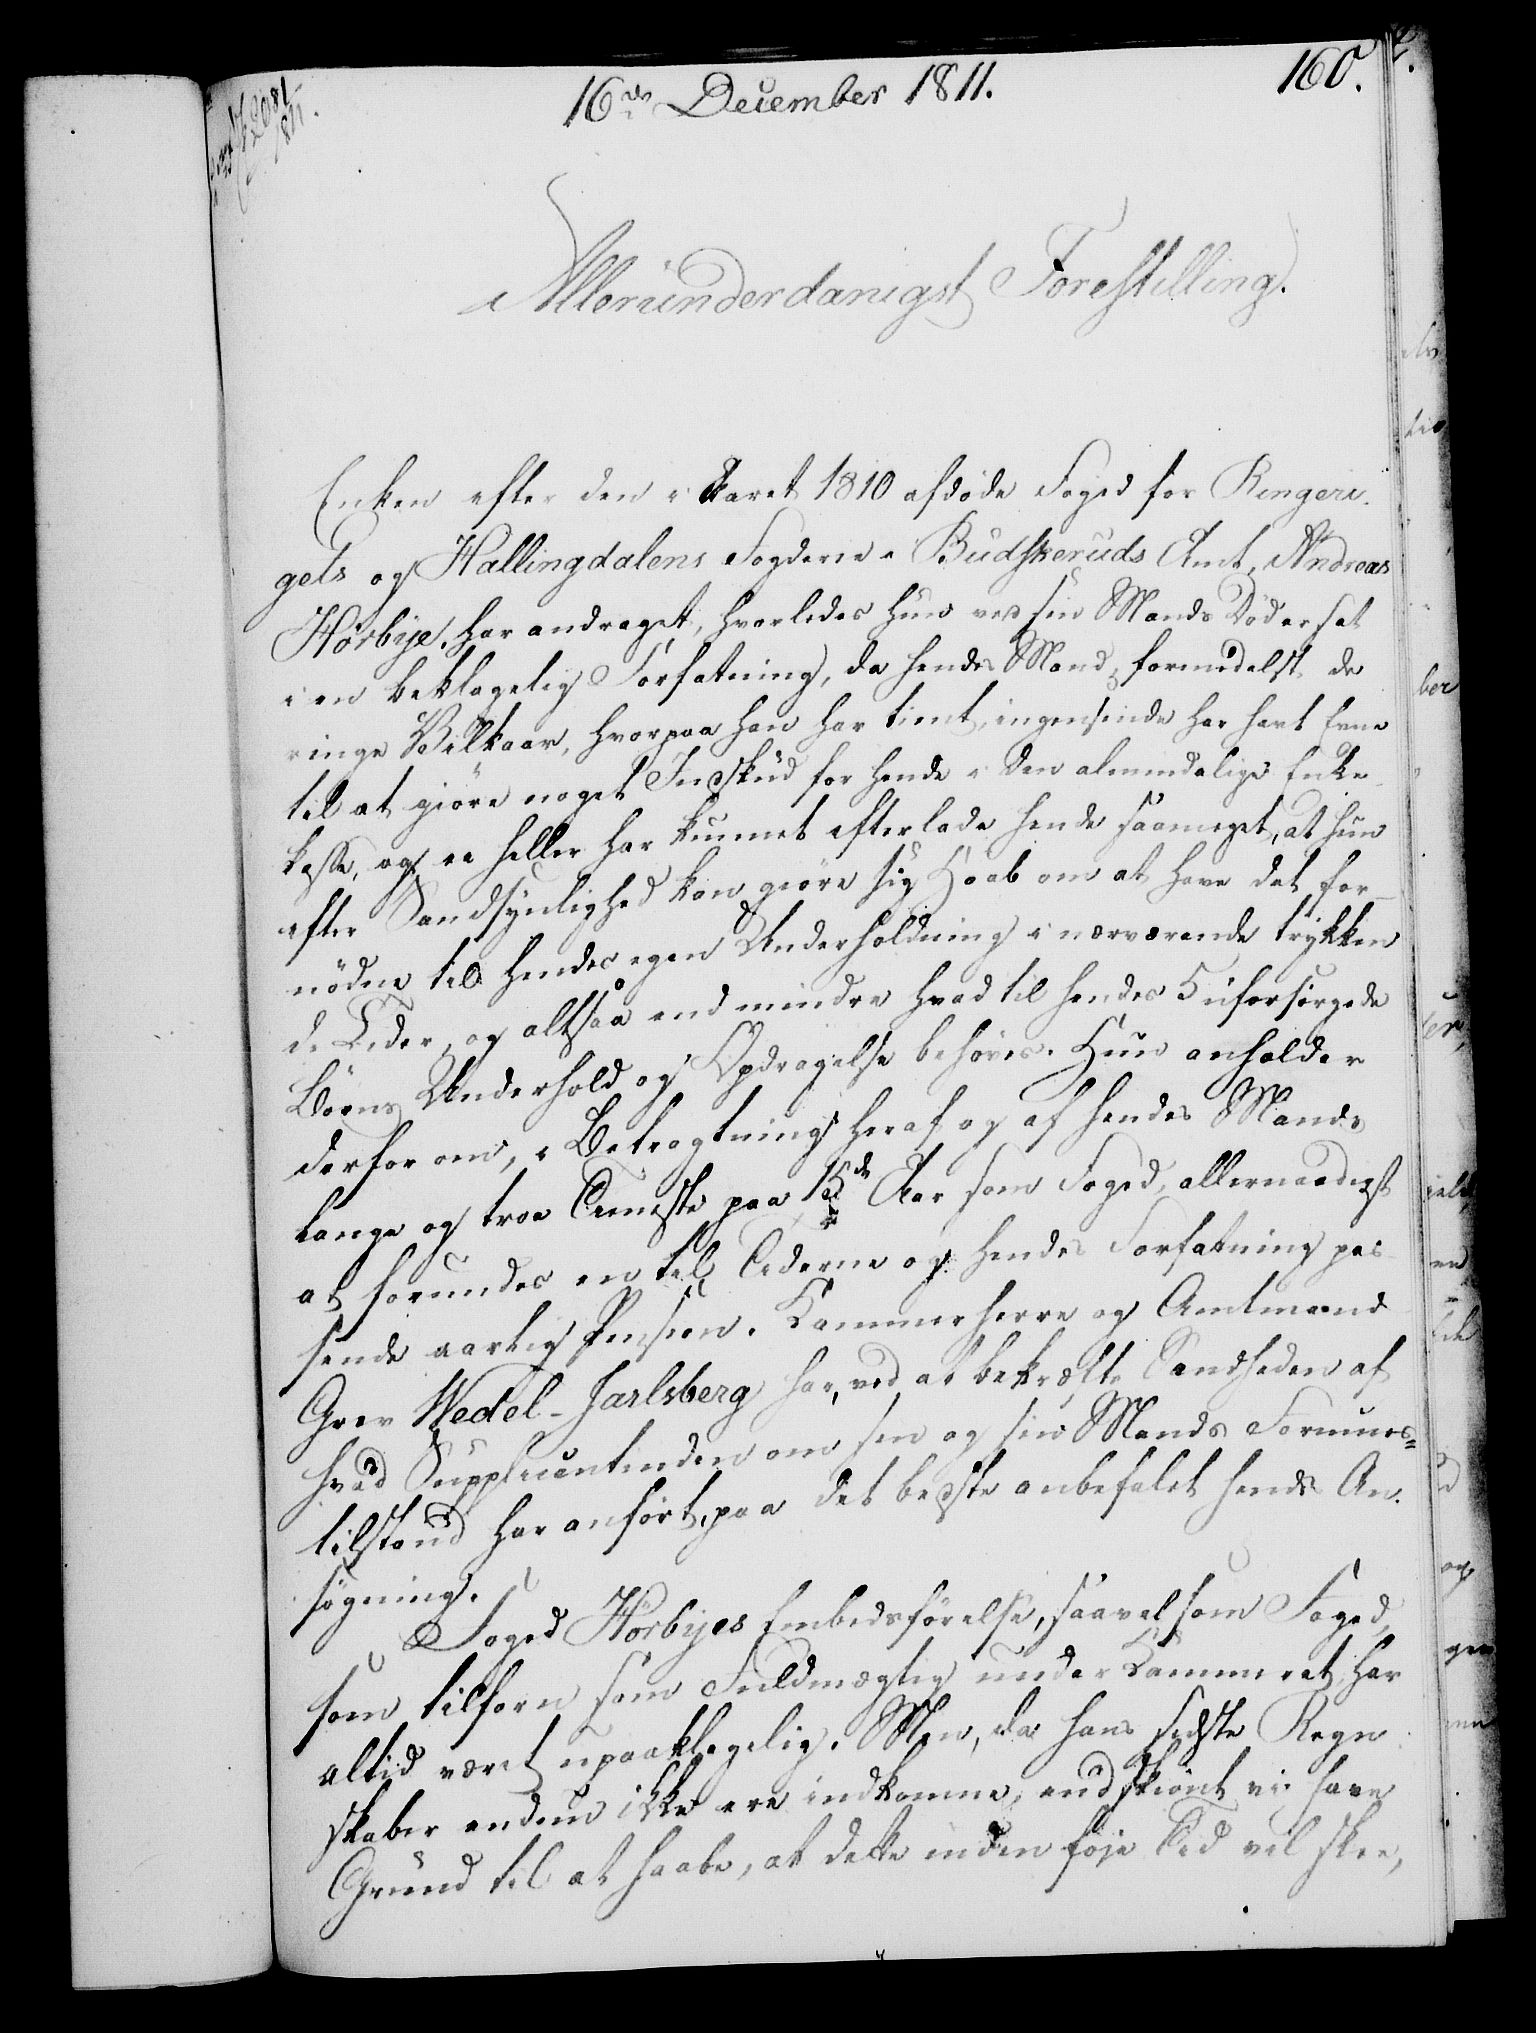 16de December 1811.
160.
2081
1811.
Allerunderdanigst Forestilling.
Enken efter den i Aaret 1810 afdøde Foged for Ringeri-
gets og Hallingdalens Fogderie i Budskeruds Amt, Andreas
Hörbye, har andraget, hvorledes hun ved sin Mands Död er sat
i en beklagelig Forfatning, da hendes Mand, formedelst de
ringe Vilkaar, hvorpaa han har tient, ingensinde har havt Evne
til at giöre noget Indskud for hende i den almindelige Enke-
kasse, og ei heller har kunnet efterlade hende saameget, at hun
efter Sandsynlighed kan giöre sig Haab om at have det for-
nödne til hendes egen Underholdning i nærværende trykken-
de Tider, og altsaa end mindre hvad til hendes 5 uforsörgede
Börns Underhold og Opdragelse behöves. Hun anholder
derfor om, i Betragtning heraf og af hendes Mands
lange og troe Tieneste paa 15de Aar som Foged, allernaadigst
at forundes en til Tiderne og hendes Forfatning pas-
sende aarlig Pension. Kammerherre og Amtmand
Grev Wedel-Jarlsberg har, ved at bekræfte Sandheden af
hvad Supplicantinden om sin og sin Mands Formues-
tilstand har anfört, paa det bedste anbefalet hendes An-
søgning.
Foged Hörbyes Embedsförelse, saavel som Foged,
som tilforn som Fuldmægtig under Kammeret, har
altid været upaaklagelig. Men, da hans sidste Regn-
skaber endnu ikke ere indkomne, endskiönt vi have
Grund til at haabe, at dette inden föje Tid vil skee,